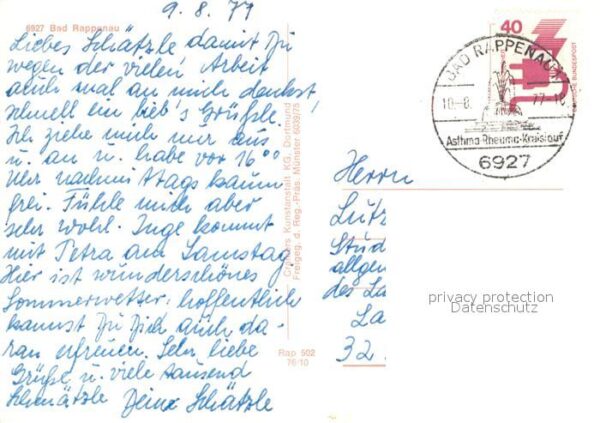 9. 8. 77
6927 Bad Rappenau
Liebes Schätzle damit Du
wegen der vielen Arbeit
auch mal an mich denkst,
schnell ein lieb's Grüßle.
Ich ziehe mich nur aus
u. an u. habe vor 16°°
Uhr nachmittags kaum
frei. Fühle mich aber
sehr wohl. Inge kommt
mit Petra am Samstag.
Hier ist wunderschönes
Sommerwetter, hoffentlich
kannst Du Dich auch da-
ran erfreuen. Sehr liebe
Grüße u. viele tausend
Schmätzle Deine Schätzle
Cramers Kunstanstalt KG, Dortmund
Freigeg. d. Reg.-Präs. Münster 6039/75
Rap 502
76/10
40
DEUTSCHE BUNDESPOST
BAD RAPPENAU
10.-8. 77-18
Asthma-Rheuma-Kreislauf
6927
Herrn
Lutz
Stud
allgem
des La
La
32.
privacy protection
Datenschutz